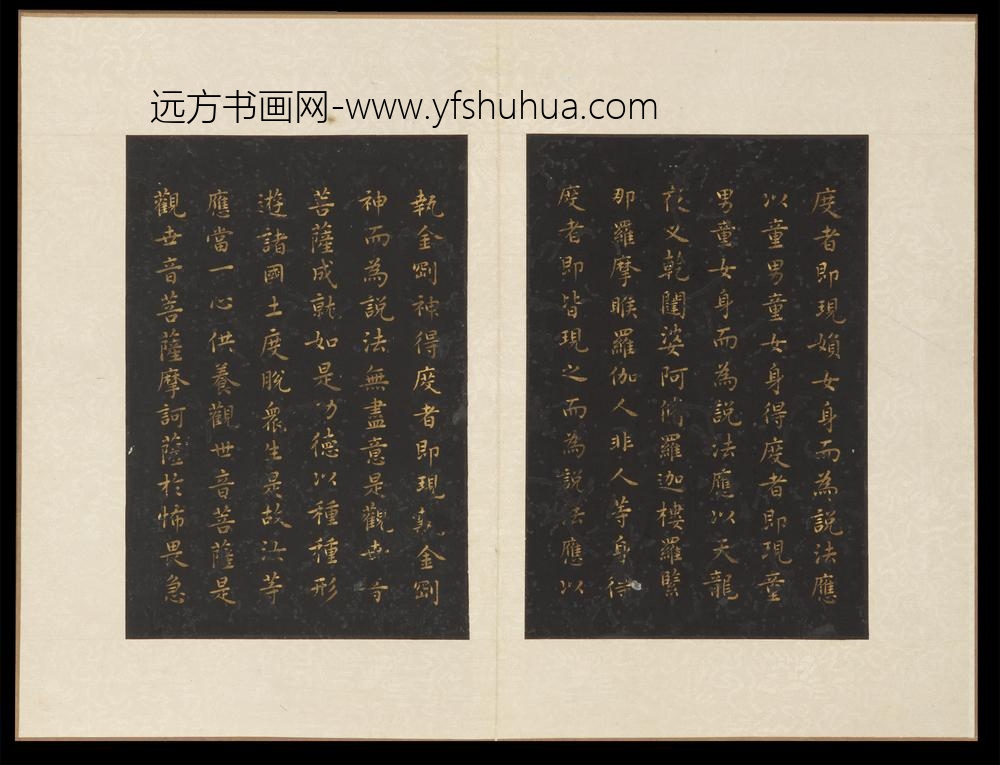 远方书画网-www.yfshuhua.com
度者即現媍女身而為說法應
以童男童女身得度者即現童
男童女身而為說法應以天龍
夜叉乾闥婆阿脩羅迦樓羅緊
那羅摩睺羅伽人非人等身得
度者即皆現之而為說法應以
執金剛神得度者即現執金剛
神而為說法無盡意是觀世音
菩薩成就如是功德以種種形
遊諸國土度脫衆生是故汝等
應當一心供養觀世音菩薩是
觀世音菩薩摩訶薩於怖畏急